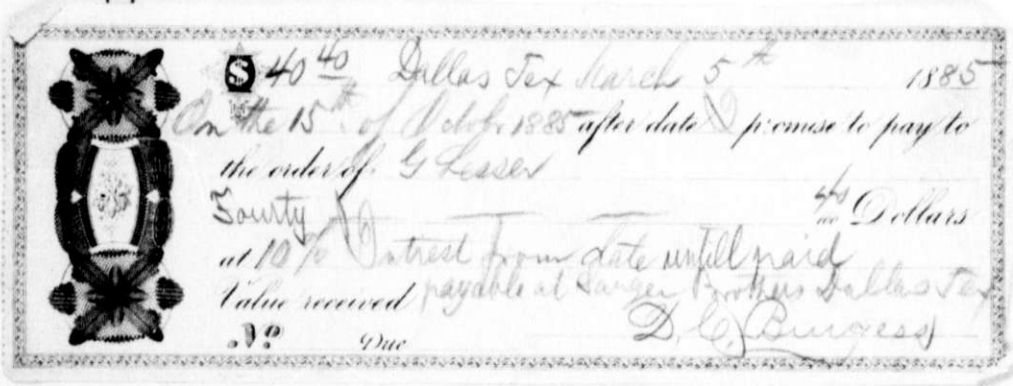 $ 40 40 Dallas Tex March 5th 1885
On the 15th of Octobr 1885 after date I promise to pay to
the order of G Lesser
Fourty 40/100 Dollars
at 10% Intrest from date untill paid
Value received payable at Sanger Brothers Dallas Tex
No Due D. C. Burgess